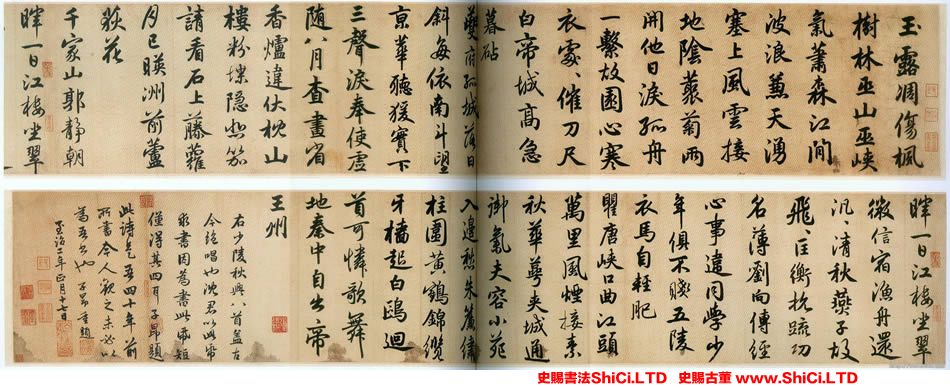 玉露凋傷楓
樹林巫山巫峽
氣蕭森江間
波浪蒹天湧
塞上風雲接
地陰叢菊兩
開他日淚孤舟
一繫故園心寒
衣處〻催刀尺
白帝城高急
暮砧
夔府孤城落日
斜每依南斗望
京華聽猨實下
三聲淚奉使虛
随八月查畫省
香爐違伏枕山
樓粉堞隐悲笳
請看石上藤蘿
月已映洲前蘆
荻花
千家山郭靜朝
暉一日江樓坐翠
暉一日江樓坐翠
微信宿漁舟還
汎〻清秋燕子故
飛〻匡衡抗疏功
名薄劉向傳經
心事違同學少
年俱不賤五陵
衣馬自輕肥
瞿唐峽口曲江頭
萬里風煙接素
秋華萼夾城通
御氣芙容小苑
入邊愁朱簾繡
柱圍黄鵠錦纜
牙檣起白鷗迴
首可憐歌舞
地秦中自古帝
王州
右少陵秋興八首蓋古
今絶唱也沈君以此帋
求書因為書此帋短
僅得其四耳子昂題
此詩是吾四十年前
所書今人觀之未必以
為吾書也子昂重題
至治二年正月十七日
史賜書法ShiCi.LTD 史賜古董 www.ShiCi.LTD